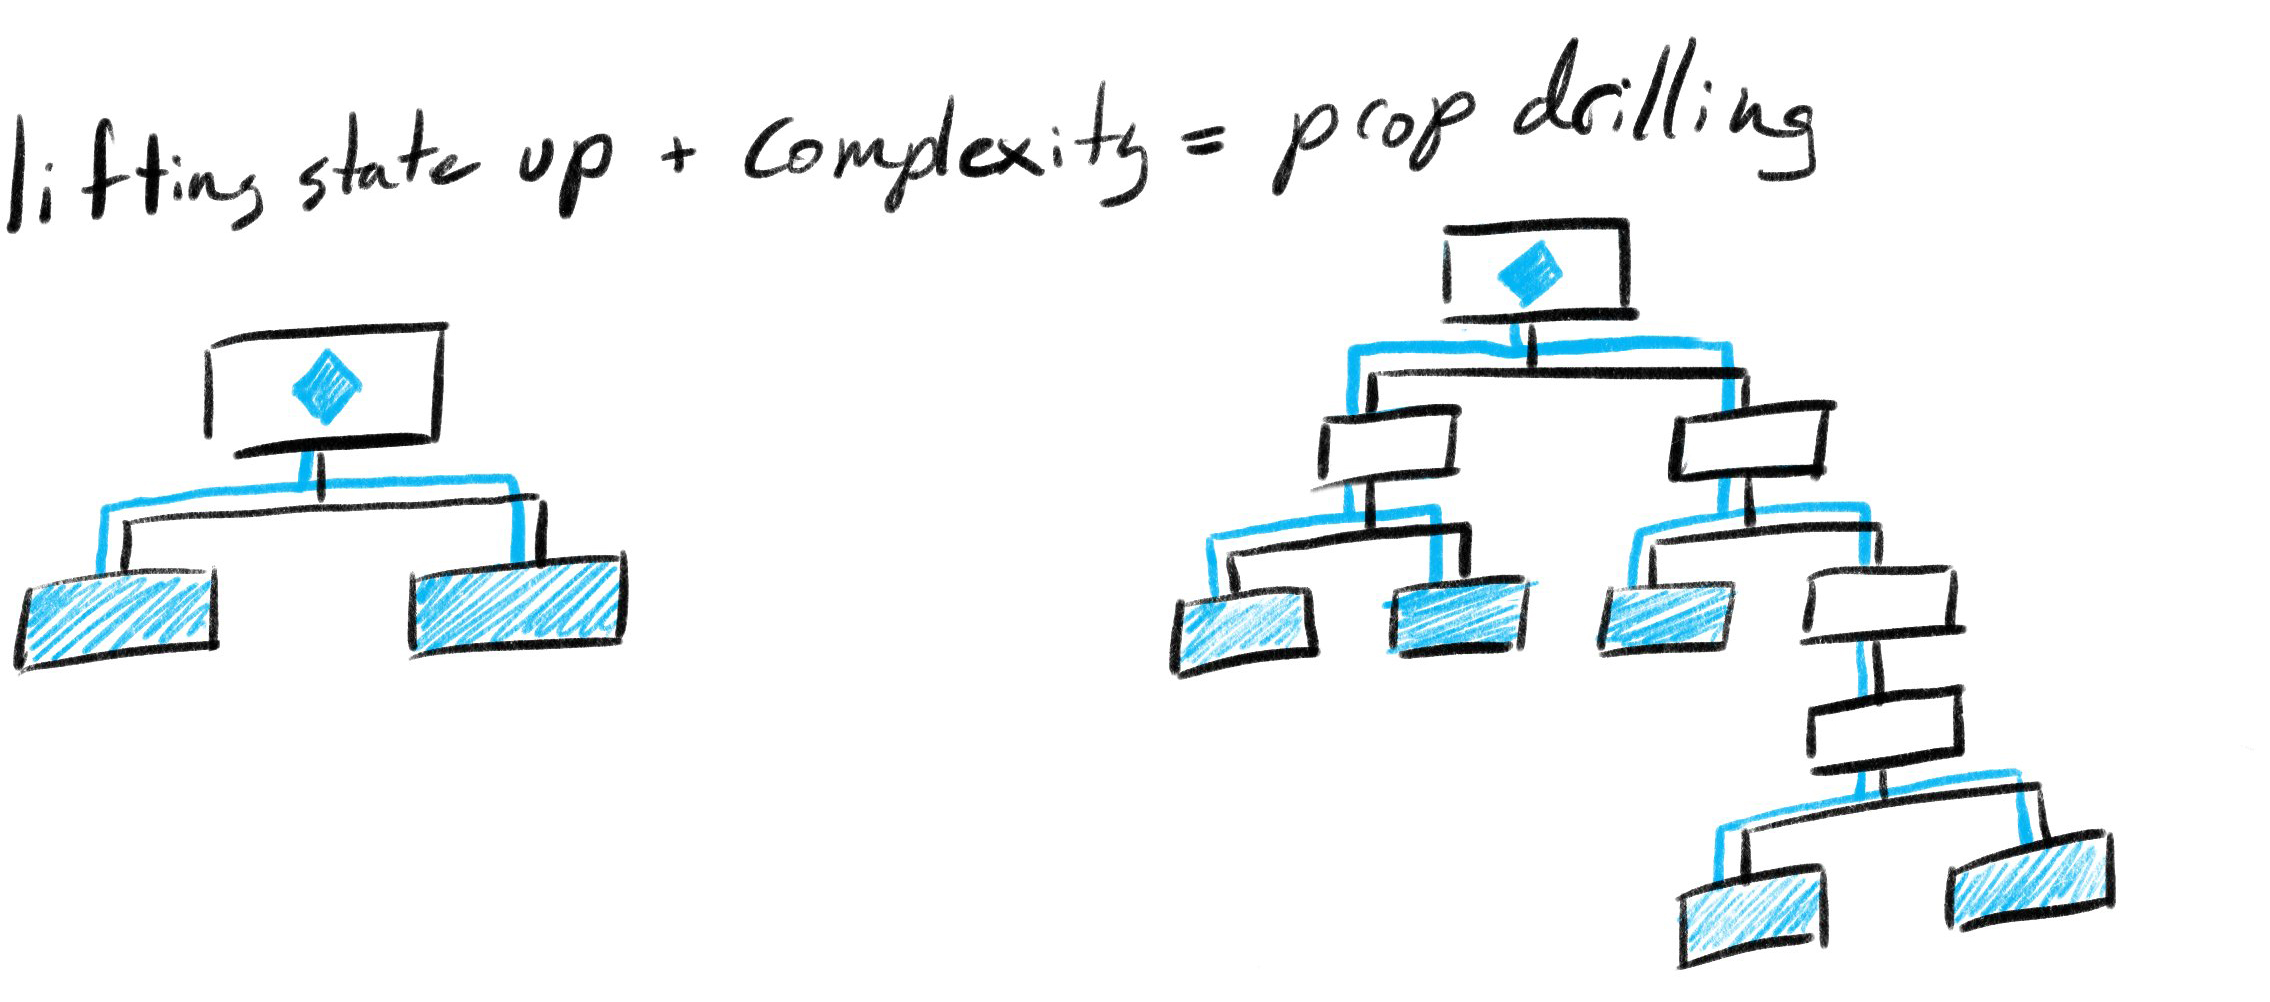 lifting state up + complexity = prop drilling